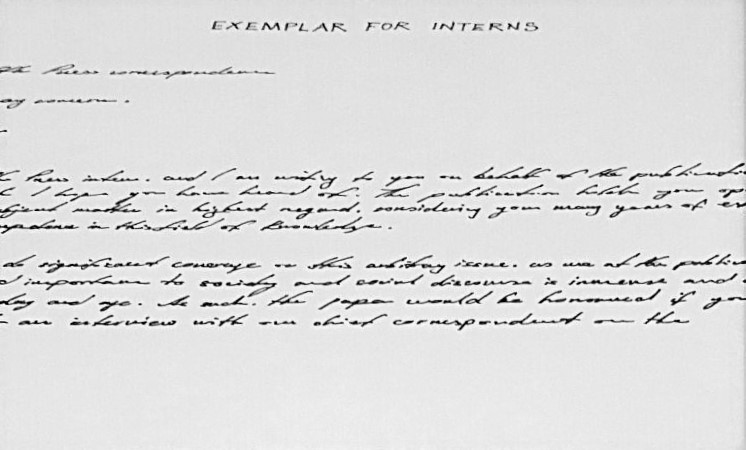 EXEMPLAR FOR INTERNS
the Press correspondence
may concern.
Press intern. and I am writing to you on behalf of the publication
I hope you have heard of. The publication holds you
subject matter in highest regard, considering your many years of
in this field of knowledge.
significant coverage on this arbitrary issue. as we at the
importance to society and social discourse is immense and
day and age. As such. the paper would be honoured if
an interview with our chief correspondent on the